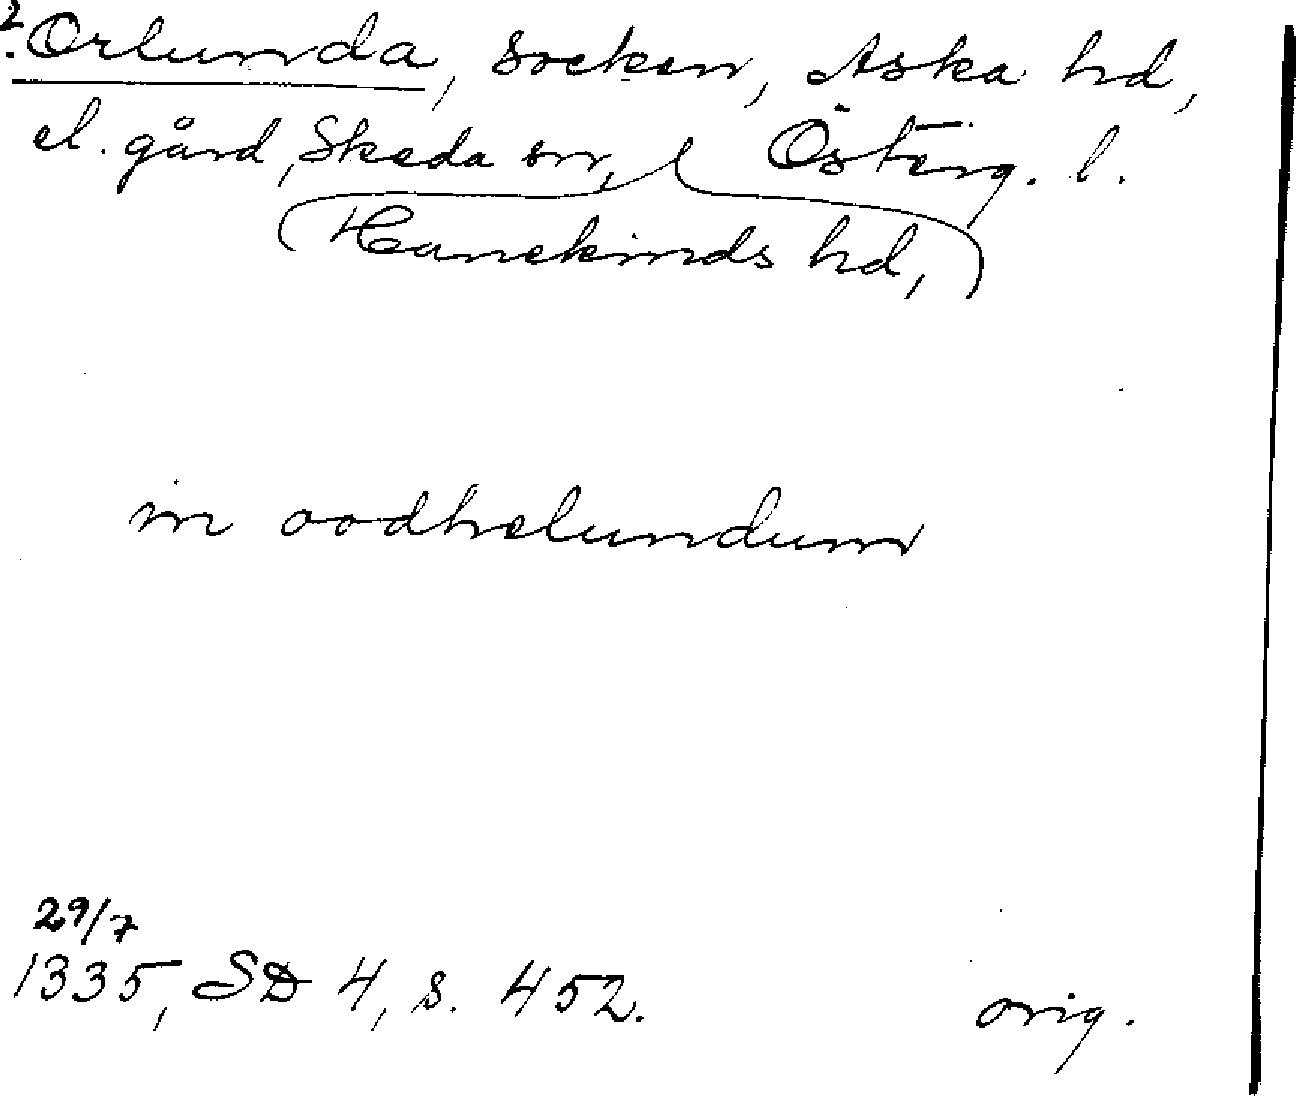 ?. Orlunda, socken, Aska hd,
el. gård, Skeda sn, Österg. l.
(Hanekinds hd,)
in oodhelundum
29/7
1335, SD 4, s. 452. orig.